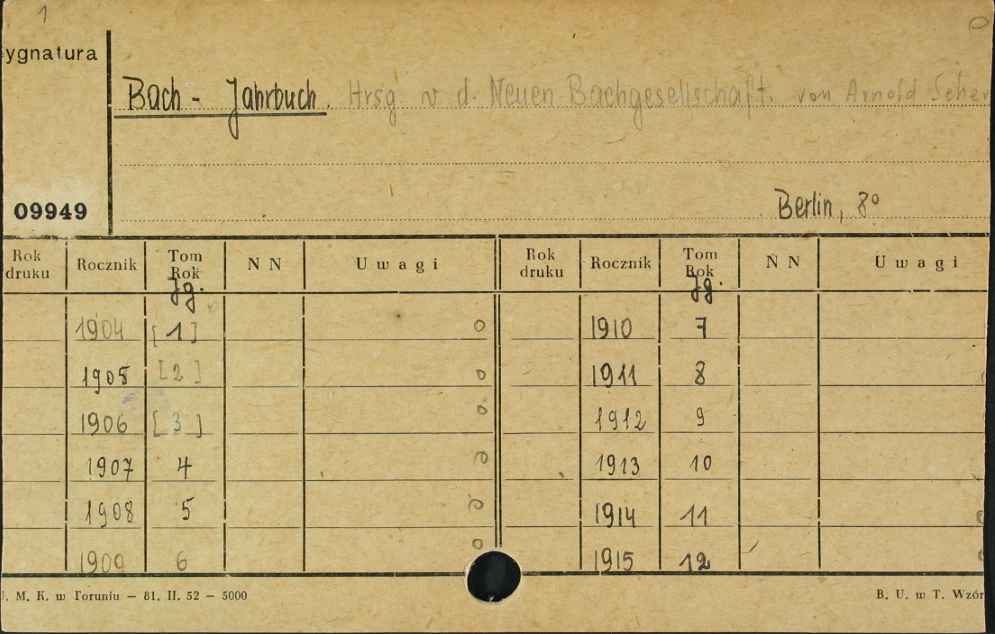 1
ygnatura
Bach - Jahrbuch. Hrsg. v d. Neuen Bachgesellschaft. von Arnold Scher
09949
Berlin, 8°
Rok druku Rocznik Tom Rok Jg. N N Uwagi Rok druku Rocznik Tom Rok Jg. N N Uwagi
1904 [1] o 1910 7
1905 [2] o 1911 8
1906 [3] o 1912 9
1907 4 o 1913 10
1908 5 o 1914 11
1909 6 o 1915 12
M. K. w Toruniu — 81. II. 52 — 5000 B. U. w T. Wzór